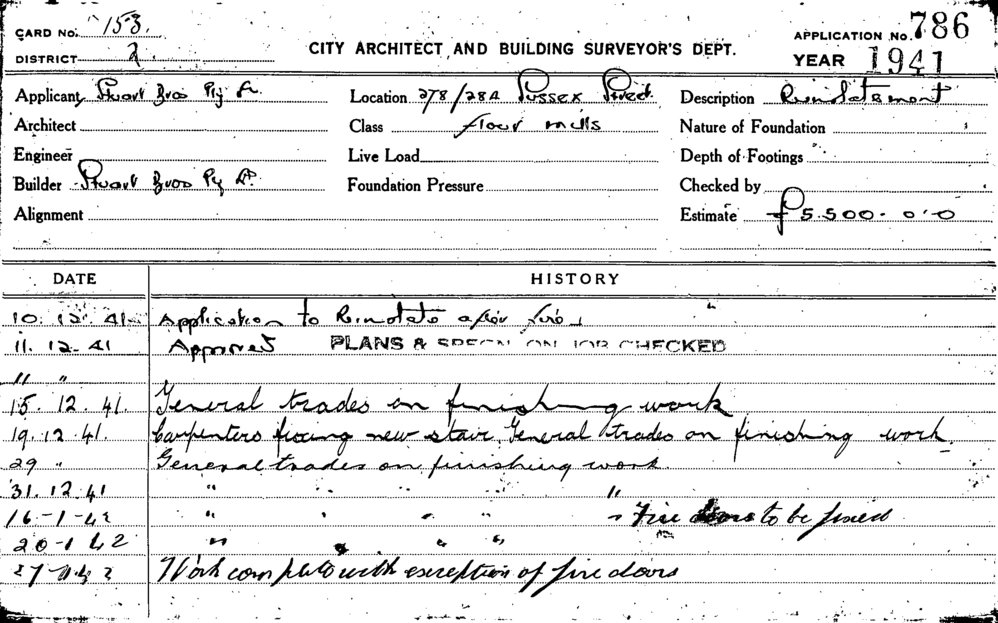 CARD NO. 153.
APPLICATION NO. 786
DISTRICT 2.
CITY ARCHITECT AND BUILDING SURVEYOR'S DEPT.
YEAR 1941
Applicant Stuart Bros Pty Ltd.
Location 278/284 Sussex Street.
Description Reinstatement
Architect
Class flour mills
Nature of Foundation
Engineer
Live Load
Depth of Footings
Builder Stuart Bros Pty Ltd.
Foundation Pressure
Checked by
Alignment
Estimate £5500.0.0
DATE HISTORY
10.12.41 Application to Reinstate after fire
11.12.41 Approved PLANS & SPECN ON JOB CHECKED
" "
15.12.41. General trades on finishing work
19.12.41. Carpenters fixing new stair, General trades on finishing work.
29 " General trades on finishing work.
31.12.41 " " " " "
16-1-42 " " " " " Fire doors to be fixed
20-1 42 " " " "
27-1-42 Work complete with exception of fire doors